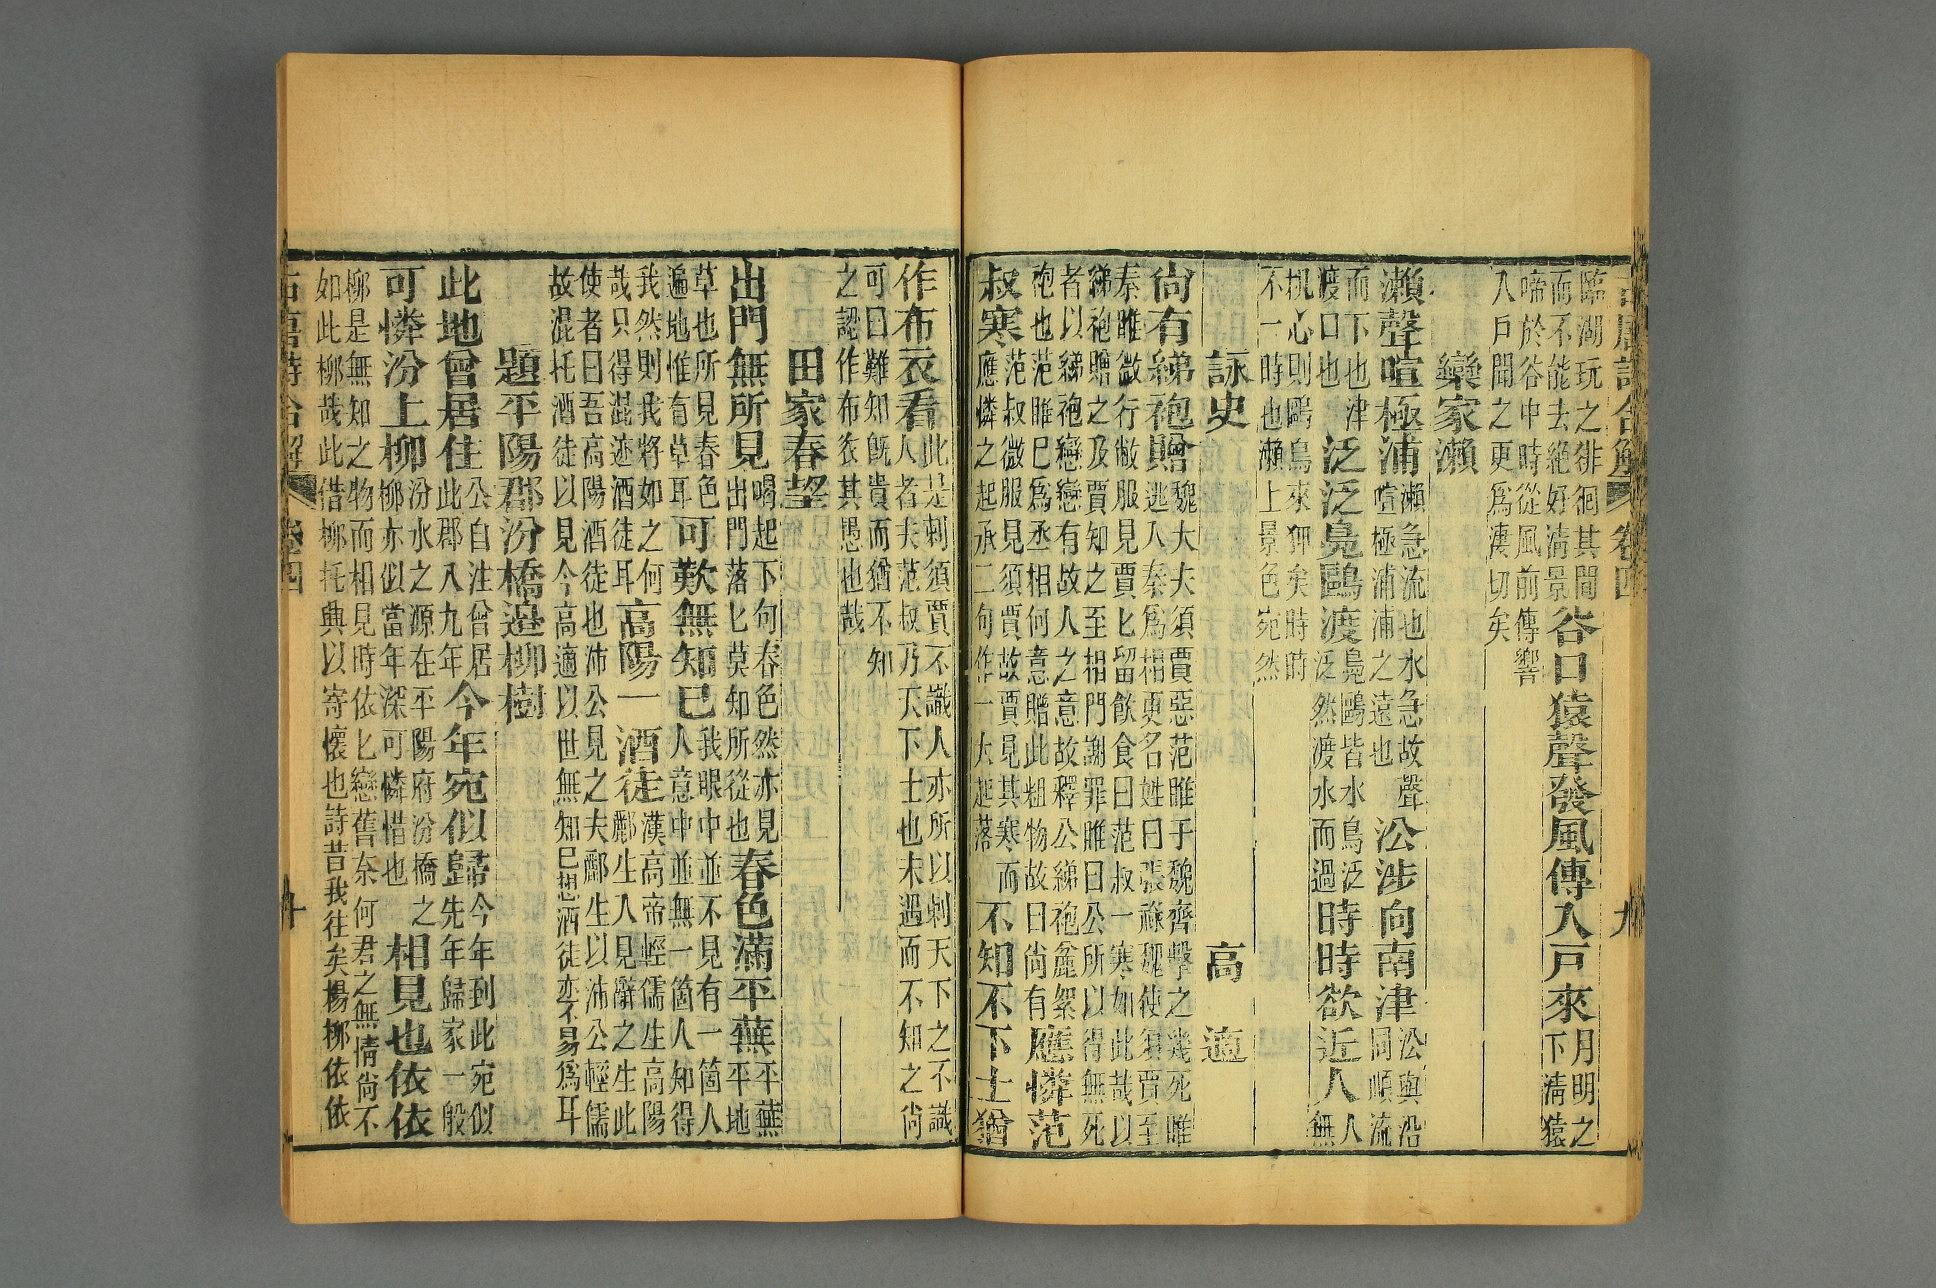 古唐詩合解 卷四 九
臨湖玩之徘徊其間
而不能去絕好清景
谷口猿聲發風傳入戶來
月明之
下清猿
啼於谷中時從風前傳響
入戶聞之更爲淒切矣
欒家瀨
瀨聲喧極浦
瀨急流也水急故聲
喧極浦浦之遠也
㳂涉向南津
㳂與沿
同順流
而下也津
渡口也
泛泛鳧鷗渡
鳧鷗皆水鳥泛
泛然渡水而過
時時欲近人
人
無
機心則鷗鳥來狎矣時時
不一時也瀨上景色宛然
詠史 高適
尙有綈袍贈
魏大夫須賈惡范睢于魏齊擊之幾死睢
逃入秦爲相更名姓曰張祿魏使須賈至
秦睢微行敝服見賈匕留飮食曰范叔一寒如此哉以
綈袍贈之及賈知之至相門謝罪睢曰公所以得無死
者以綈袍戀戀有故人之意故釋公綈袍麄絮
袍也范睢巳爲丞相何意贈此粗物故曰尙有
應憐范
叔寒
范叔微服見須賈故賈見其寒而
應憐之起承二句作一大起落
不知天下士猶
作布衣看
此是刺須賈不識人亦所以刺天下之不識
人者夫范叔乃天下士也未遇而不知之尙
可曰難知旣貴而猶不知
之認作布衣其愚也哉
田家春望
出門無所見
喝起下句春色然亦見
出門落匕莫知所從也
春色滿平蕪
平蕪
平地
草也所見春色
遍地惟有草耳
可歎無知巳
我眼中並不見有一箇人
人意中並無一箇人知得
我然則我將如之何
哉只得混迹酒徒耳
高陽一酒徒
漢高帝輕儒生高陽
酈生入見辭之生此
使者曰吾高陽酒徒也沛公見之夫酈生以沛公輕儒
故混托酒徒以見今高適以世無知巳想酒徒亦不易爲耳
題平陽郡汾橋邉柳樹
此地曾居住
公自注曾居
此郡八九年
今年宛似歸
今年到此宛似
先年歸家一般
可憐汾上柳
汾水之源在平陽府汾橋之
柳亦似當年深可憐惜也
相見也依依
柳是無知之物而相見時依匕戀舊奈何君之無情尙不
如此柳哉此借柳托興以寄懷也詩昔我往矣楊柳依依
古唐詩合解 卷四 十